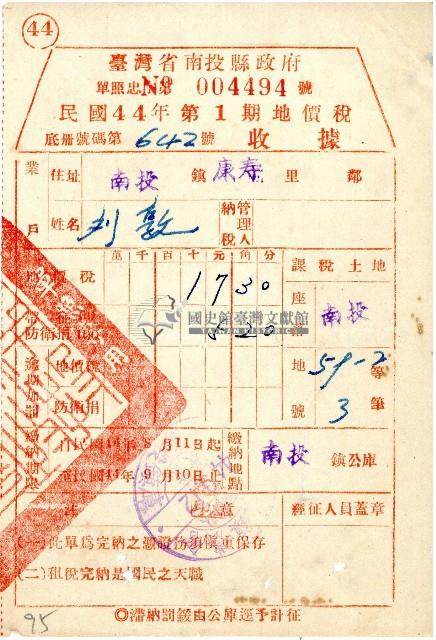 44
臺灣省南投縣政府
單照忠 № 004494 號
民國44年第1期地價稅
底册號碼第 642 號 收據
業戶 住址 南投 鎮 康寿 里 鄰
姓名 刘敦 納稅管理人
萬千百十元角分 課稅土地
地價稅 17 30 座落 南投
帶征 防衛捐 5 20
國史館臺灣文獻館
TAIWAN HISTORICA
逾期加罰 地價稅 地號 59-2 等
防衛捐 3 筆
繳納期限 自民國44年8月11日起 繳納地點 南投 鎮公庫
至民國44年9月10日止
備注 注意 經征人員蓋章
(一)此單為完納之憑證務須慎重保存
(二)租稅完納是國民之天職
◎滯納罰鍰由公庫逕予征計
95